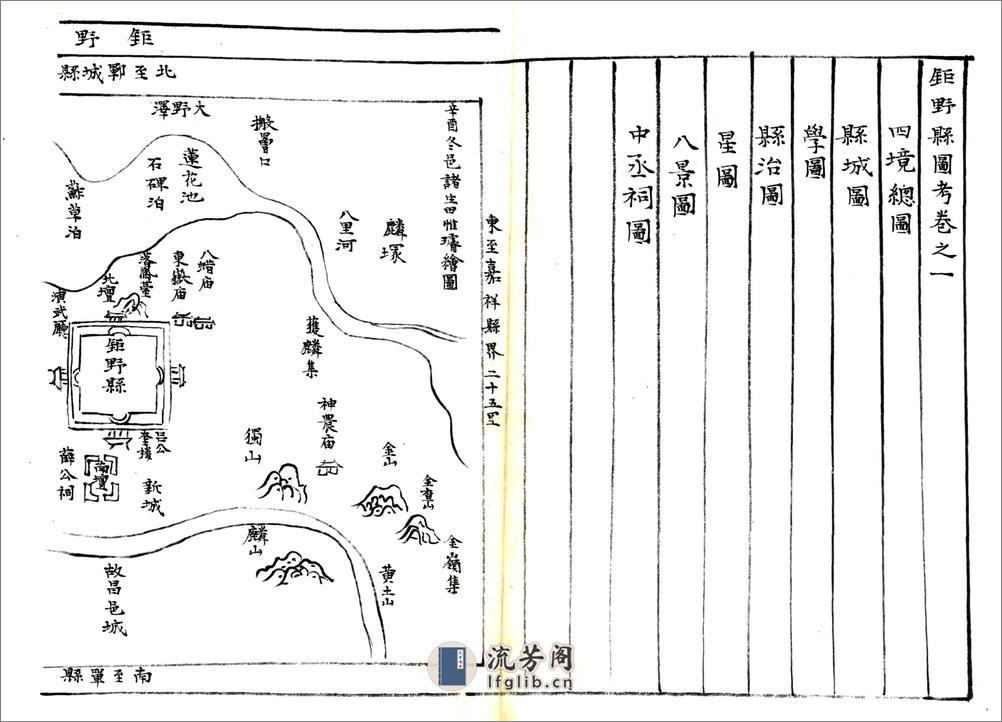 鉅野縣圖考卷之一
四境總圖
縣城圖
學圖
縣治圖
星圖
八景圖
中丞祠圖
鉅野
北至鄆城縣
東至嘉祥縣界二十五里
南至單縣
辛酉冬邑諸生田惟璿繪圖
大野澤
搬罾口
蓮花池
石碑泊
蘇草泊
麟塚
八里河
八蜡庙
東嶽庙
落鳳臺
北壇
演武廳
鉅野縣
獲麟集
神農庙
呂公
奎樓
南壇
薛公祠
新城
獨山
金山
金山
金嶺集
麟山
黃土山
故昌邑城
流芳阁
lfglib.cn